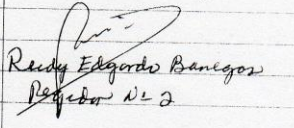 Rudy Edgardo Banegas
Regidor Nº 2